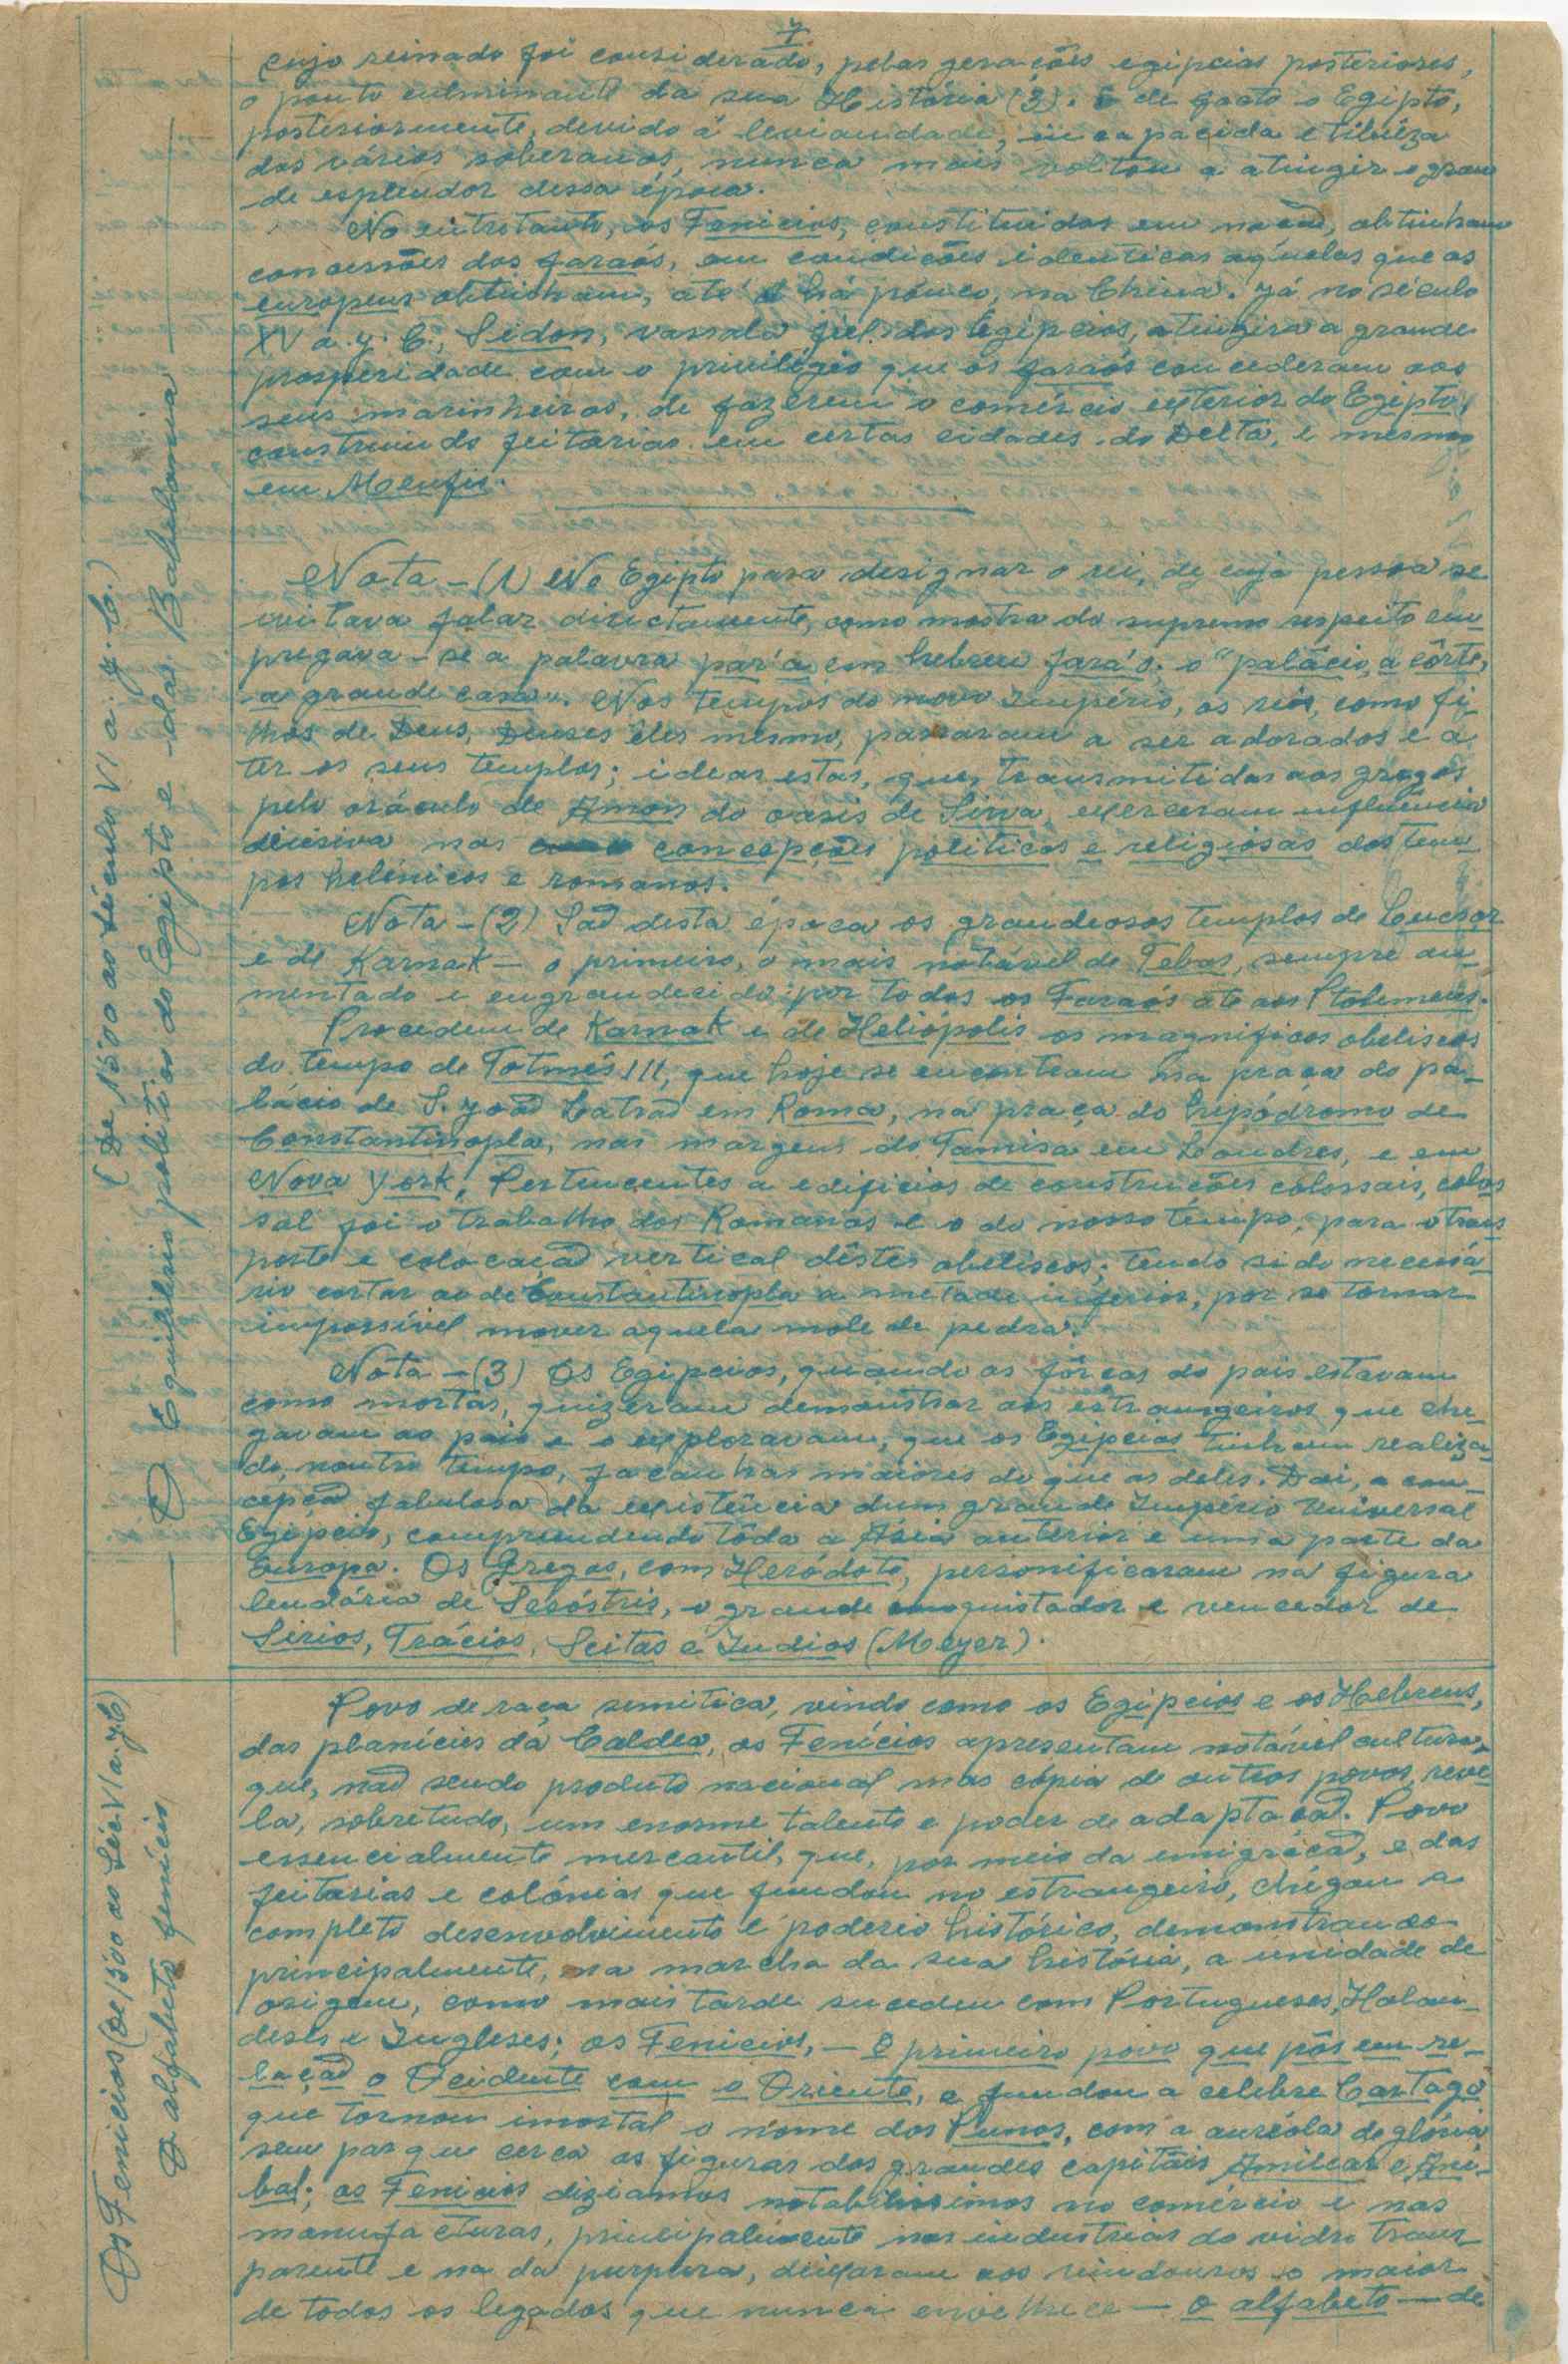 7
cujo reinado foi considerado, pelas gerações egipcias posteriores,
o ponto culminante da sua História (3). E de facto o Egipto,
posteriormente, devido á leviandade, incapacida e tibiêza
dos vários soberanos, nunca mais voltou a atingir o grau
de esplendor dessa época.
No entretanto, os Fenicios, constituidos em nação, obtinham
concessões dos faraós, em condições identicas aquelas que os
europeus obtinham, até há pouco, na China. Já no século
XV a. J. C., Sidon, vassala fiel dos Egipcios, atingira a grande
prosperidade com o privilégio que os faraós concederam aos
seus marinheiros, de fazerem o comércio exterior do Egipto,
construindo feitorias em certas cidades do Delta, e mesmo
em Menfis.
Nota - (1) No Egipto para designar o rei, de cuja pessoa se
evitava falar directamente, como mostra do supremo respeito em-
pregava-se a palavra par'a em hebreu fará'o; o "palácio, a côrte,
a grande casa". Nos tempos do novo Império, os reis, como fi-
lhos de Deus, Deuses êles mesmo, passaram a ser adorados e a
ter os seus templos; idear estas, que, transmitidas aos gregos
pelo oráculo de Amon do oasis de Sirva, exerceram influência
decisiva nas concepções politicas e religiosas dos tem-
pos helénicos e romanos.
Nota - (2) São desta época os grandeosos templos de Loucsor
e de Karnak — o primeiro, o mais notável de Tebas, sempre au-
mentado e engrandecido por todos os Faraós ate aos Ptolemeus.
Procedem de Karnak e de Heliópolis os magnificos obeliscos
do tempo de Totmés III, que hoje se encontram na praça do pa-
lácio de S. João Latrão em Roma, na praça do hipódromo de
Constantinopla, nas margens do Tamisa em Londres, e em
Nova York. Pertencentes a edificios de construções colossais, colos
sal foi o trabalho dos Romanos e o do nosso tempo, para o trans
porte e colocação vertical dêstes obeliscos; tendo sido necessá-
rio cortar ao de Constantinopla a metade inferior, por se tornar
impossivel mover aquela mole de pedra.
Nota - (3) Os Egipcios, quando as fôrças do pais estavam
como mortas, quizeram demonstrar aos estrangeiros que che-
gavam ao pais e o exploravam, que os Egipcios tinham realiza-
do, noutro tempo, façanhas maiores do que as deles. Dai, a con-
cepção fabulosa da existência dum grande Império Universal
Egipcio, compreendendo tôda a Ásia anterior e uma parte da
Europa. Os Gregos, com Heródoto, personificaram na figura
lendária de Sesóstris, o grande conquistador e vencedor de
Sirios, Trácios, Scitas e Indios (Meyer).
(De 1500 ao século VI a. J. C.)
— O Equilibrio politico do Egipto e da Babelonia —
Povo de raça semitica, vindo como os Egipcios e os Hebreus,
das planicies da Caldea, os Fenícios apresentam notável cultura,
que, não sendo produto nacional mas cópia de outros povos, reve-
la, sobretudo, um enorme talento e poder de adaptação. Povo
essencialmente mercantil, que, por meio da emigração, e das
feitorias e colónias que fundou no estrangeiro, chegou a
completo desenvolvimento e poderio histórico, demonstrando
principalmente, na marcha da sua história, a unidade de
origem, como mais tarde sucedeu com Portugueses, Holan-
deses e Ingleses; os Fenicios, — o primeiro povo que pôs em re-
lação o Ocidente com o Oriente, e fundou a celebre Cartago
que tornou imortal o nome dos Punos, com a auréola de glória
sem par que cerca as figuras dos grandes capitães Amilcar e Ani-
bal; os Fenicios diziamos notabilissimos no comércio e nas
manufacturas, principalmente nas industrias do vidro trans-
parente e na da purpura, deixaram aos vindouros o maior
de todos os legados que nunca envelhece — o alfabeto — de
Os Fenicios (De 1500 ao Séc. VI a. J. C)
O alfabeto fenicio